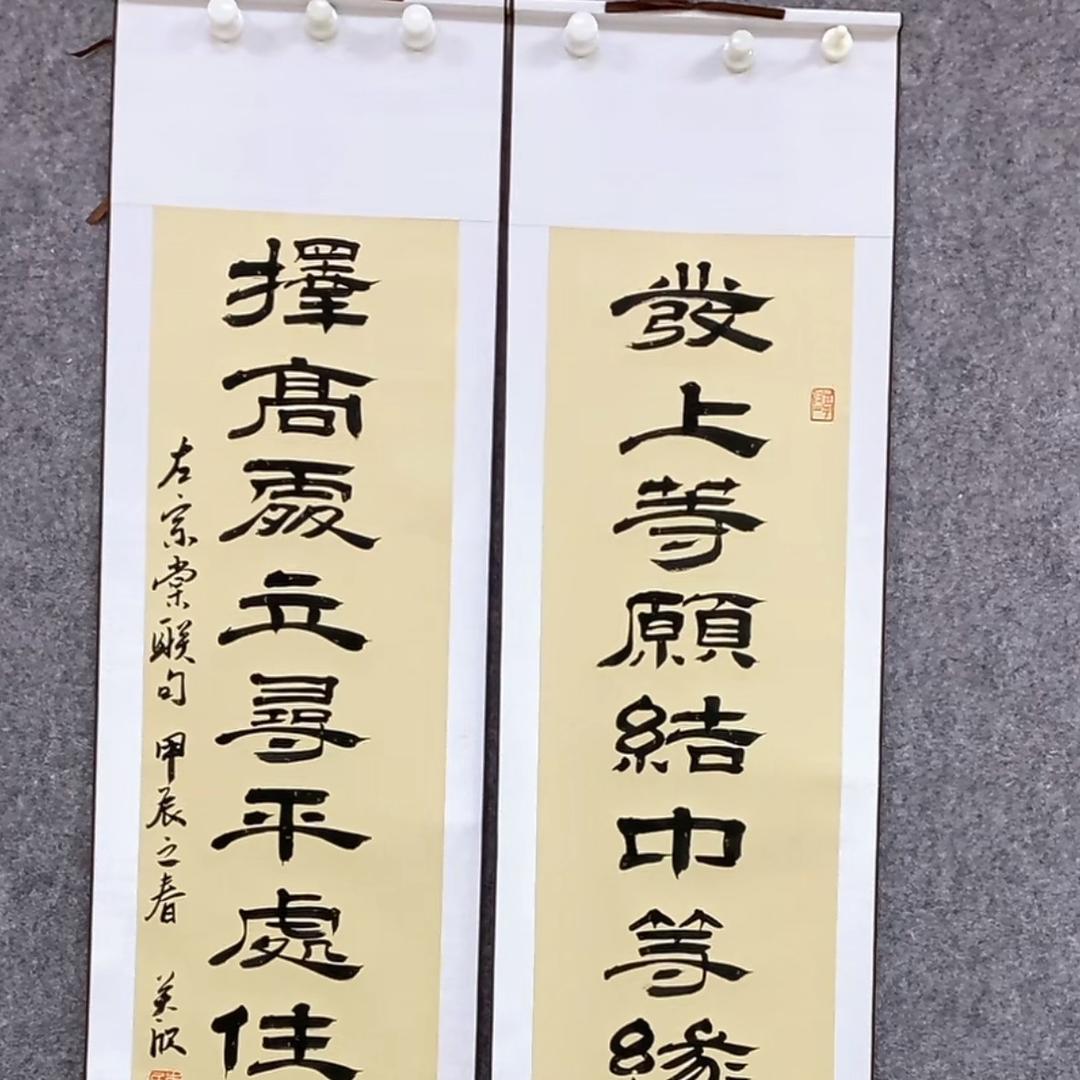 發上等願結中等緣
擇髙處立尋平處住
左宗棠联句 甲辰之春